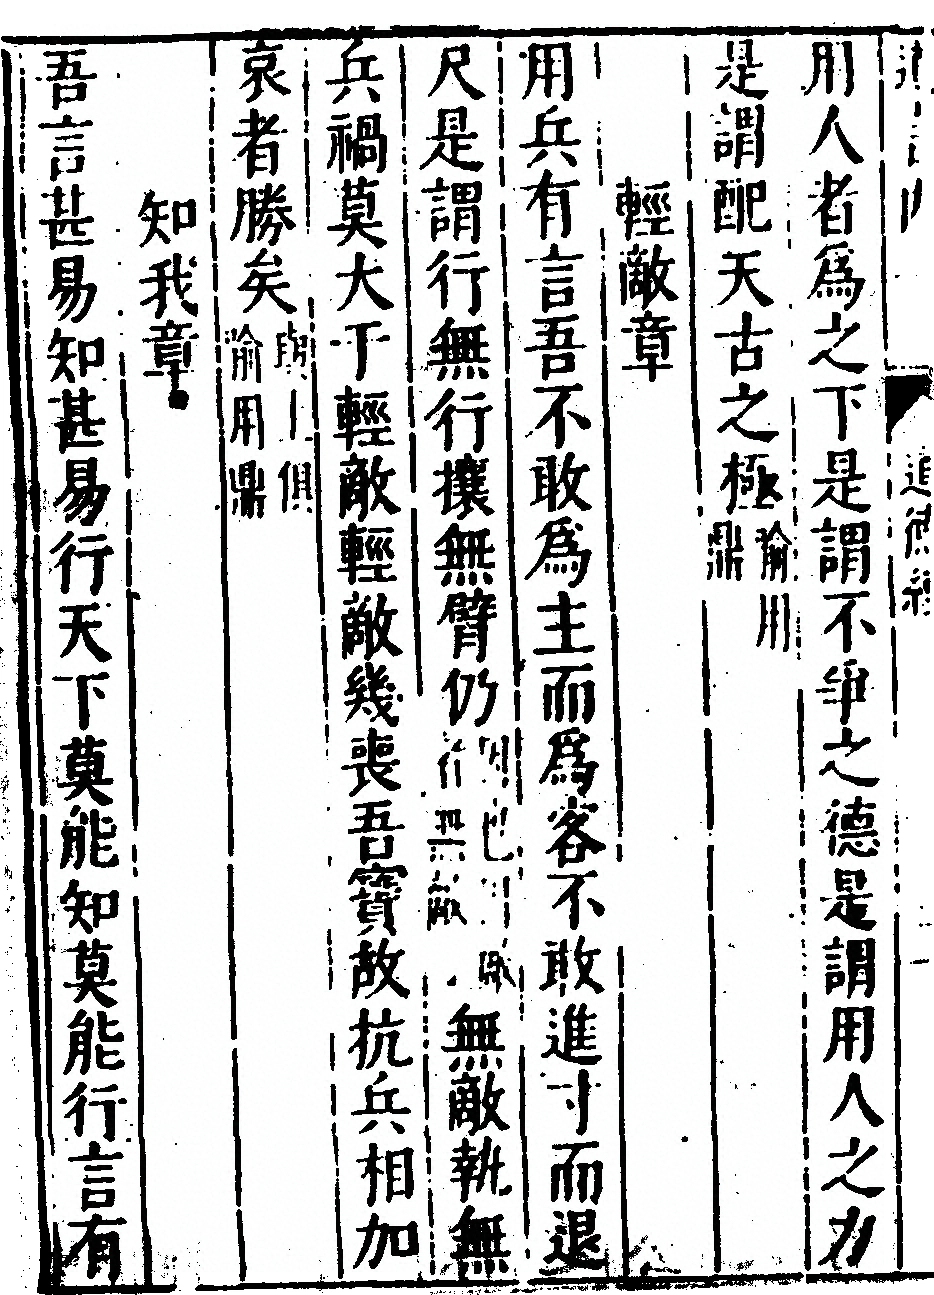 用人者爲之下是謂不爭之德是謂用人之力
是謂配天古之極
鼎
輕敵章
用兵有言吾不敢爲主而爲客不敢進寸而退
尺是謂行無行攘無臂仍
行無敵
無敵執無
兵禍莫大于輕敵輕敵幾喪吾寳故抗兵相加
哀者勝矣
俱
用鼎
知我章
吾言甚易知甚易行天下莫能知莫能行言有